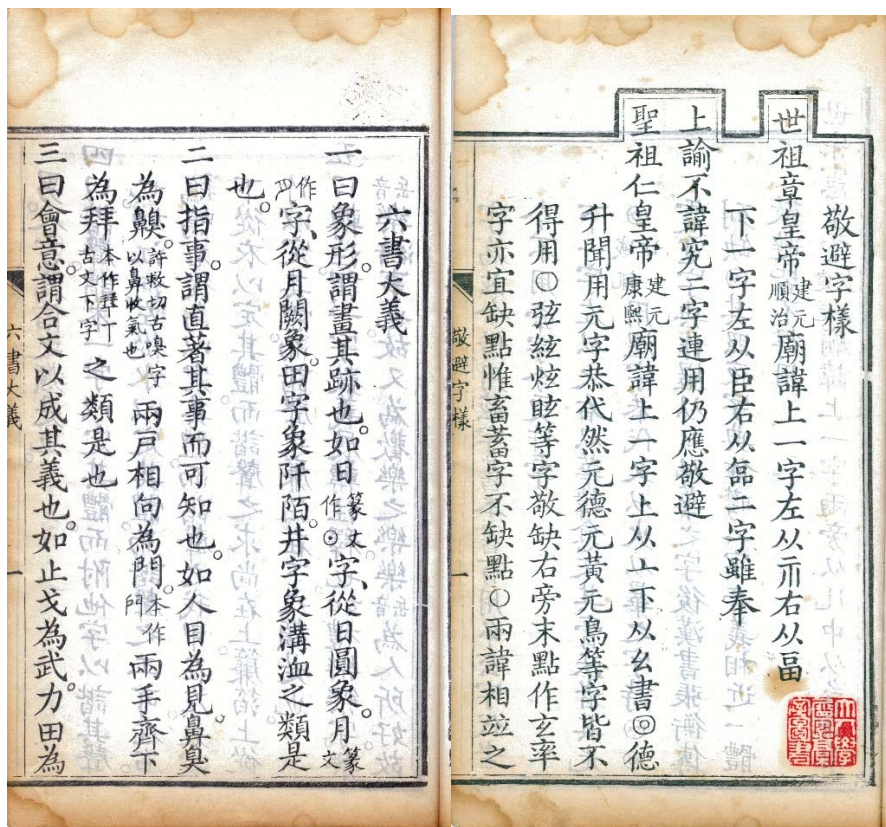 敬避字樣
世祖章皇帝建元順治廟諱上一字左从示右从畐
下一字左从臣右从品二字雖奉
上諭不諱究二字連用仍應敬避
聖祖仁皇帝建元康熙廟諱上一字上从亠下从幺書◎德
升聞用元字恭代然元德元黃元鳥等字皆不
得用〇弦絃炫眩等字敬缺右旁末點作玄率
字亦宜缺點惟畜蓄字不缺點〇兩諱相竝之
敬避字樣 一
六書大義
一曰象形。謂畫其跡也。如日篆文作⊙字、從日圓象。月篆文
作字、從月闕象。田字象阡陌。井字象溝洫之類是
也。
二曰指事。謂直著其事而可知也。如人目為見。鼻臭
為齅。許救切古嗅字以鼻收氣也兩戶相向為門。本作門兩手齊下
為拜本作丅古文下字之類是也
三曰會意。謂合文以成其義也。如止戈為武。力田為
六書大義 一